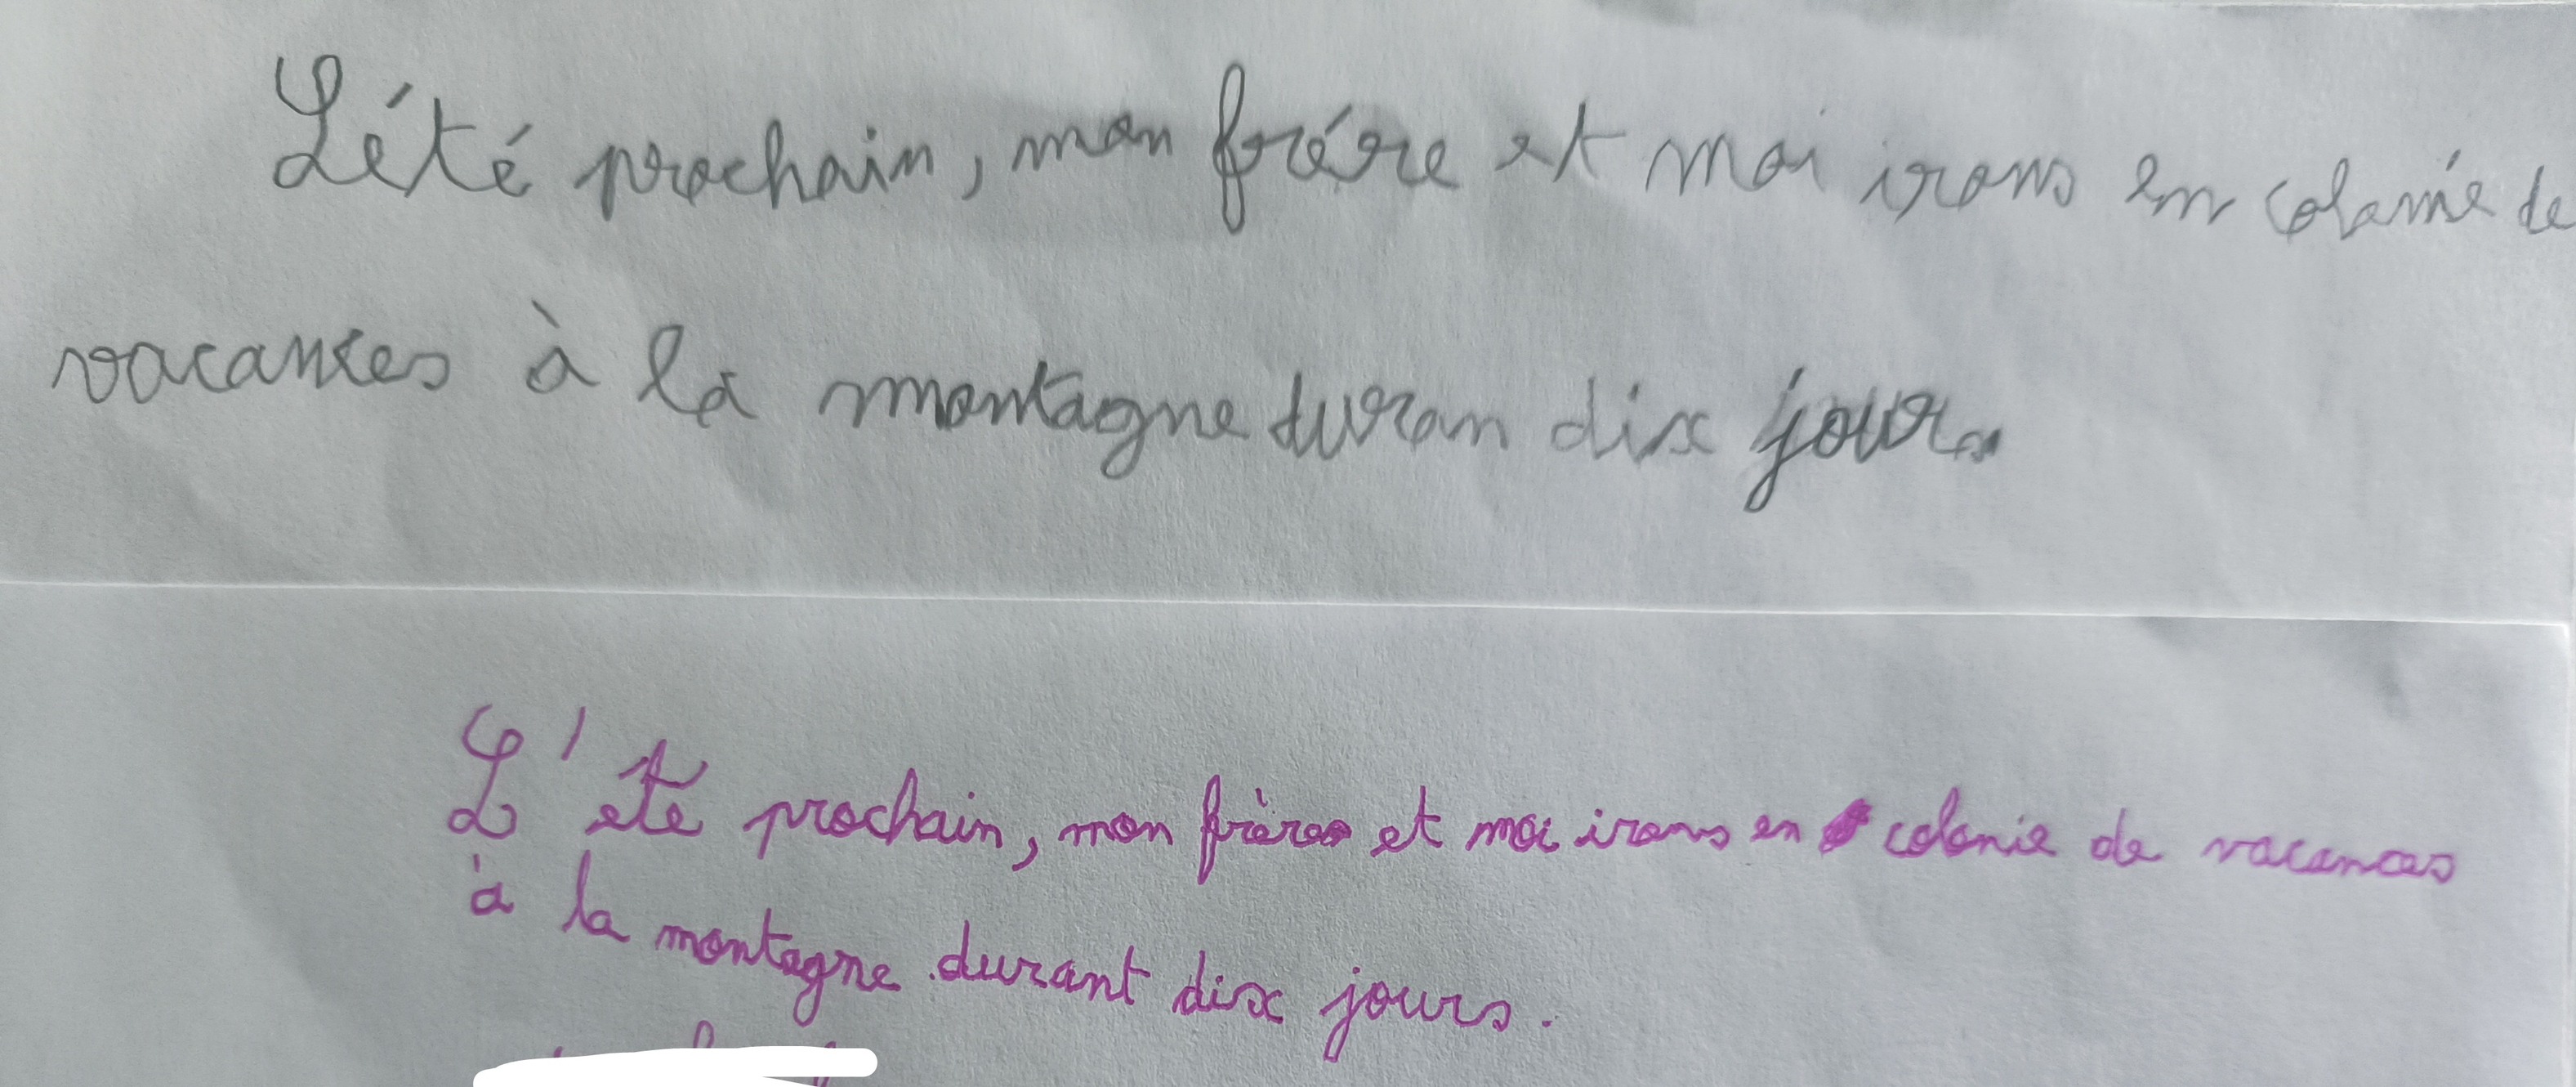 L'été prochain, mon frére et moi irons en colonie de
vacances à la montagne duran dix jour.
L'eté prochain, mon frères et moi irons en colonie de vacances
à la montagne durant dix jours.